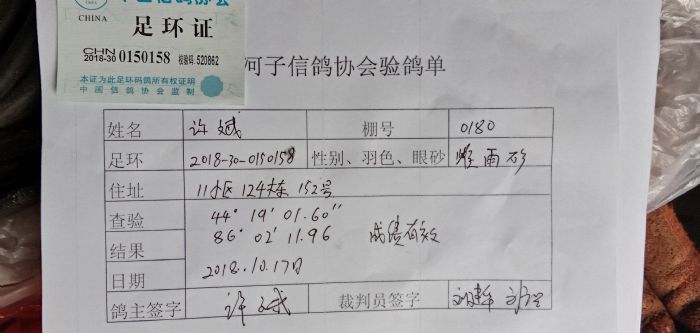 中国信鸽协会
CHINA
足环证
CHN
2018-30 0150158 校验码:520862
本证为此足环码鸽所有权证明
中国信鸽协会监制
河子信鸽协会验鸽单
姓名 许斌 棚号 0180
足环 2018-30-0150158 性别、羽色、眼砂 雌 雨 砂
住址 11小区 124栋 152号
查验 44° 19' 01.60"
结果 86° 02' 11.96 成绩有效
日期 2018.10.17日
鸽主签字 许斌 裁判员签字